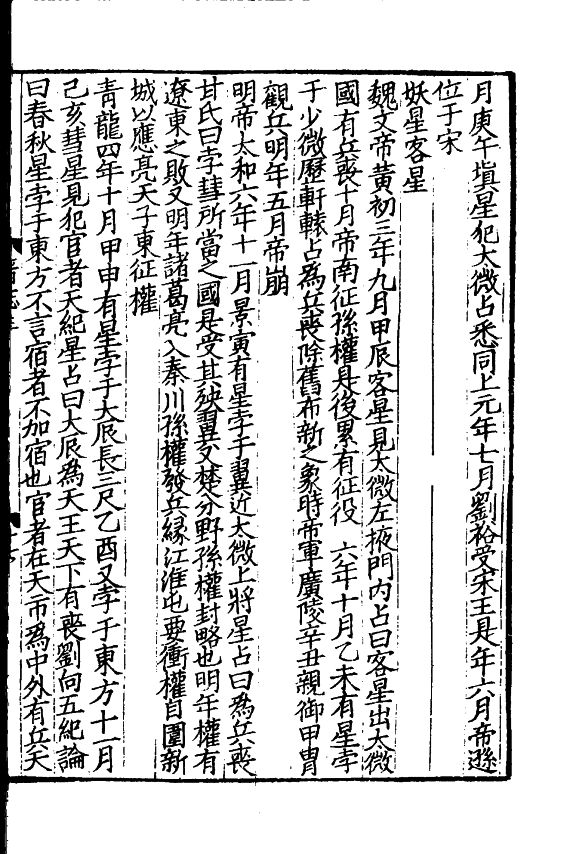 月庚午塡星犯太微占悉同上元年七月劉裕受宋王是年六月帝遜
位于宋
妖星客星
魏文帝黃初三年九月甲辰客星見太微左掖門内占曰客星出太微
國有兵喪十月帝南征孫權是後累有征役　六年十月乙未有星孛
于少微歷軒轅占爲兵喪除舊布新之象時帝軍廣陵辛丑親御甲冑
觀兵明年五月帝崩
明帝太和六年十一月景寅有星孛于翼近太微上將星占曰爲兵喪
甘氏曰孛彗所當之國是受其殃翼又楚分野孫權封略也明年權有
遼東之敗又明年諸葛亮入秦川孫權發兵緣江淮屯要衝權自圍新
城以應亮天子東征權
青龍四年十月甲申有星孛于大辰長三尺乙酉又孛于東方十一月
己亥彗星見犯宦者天紀星占曰大辰爲天王天下有喪劉向五紀論
曰春秋星孛于東方不言宿者不加宿也宦者在天市爲中外有兵天